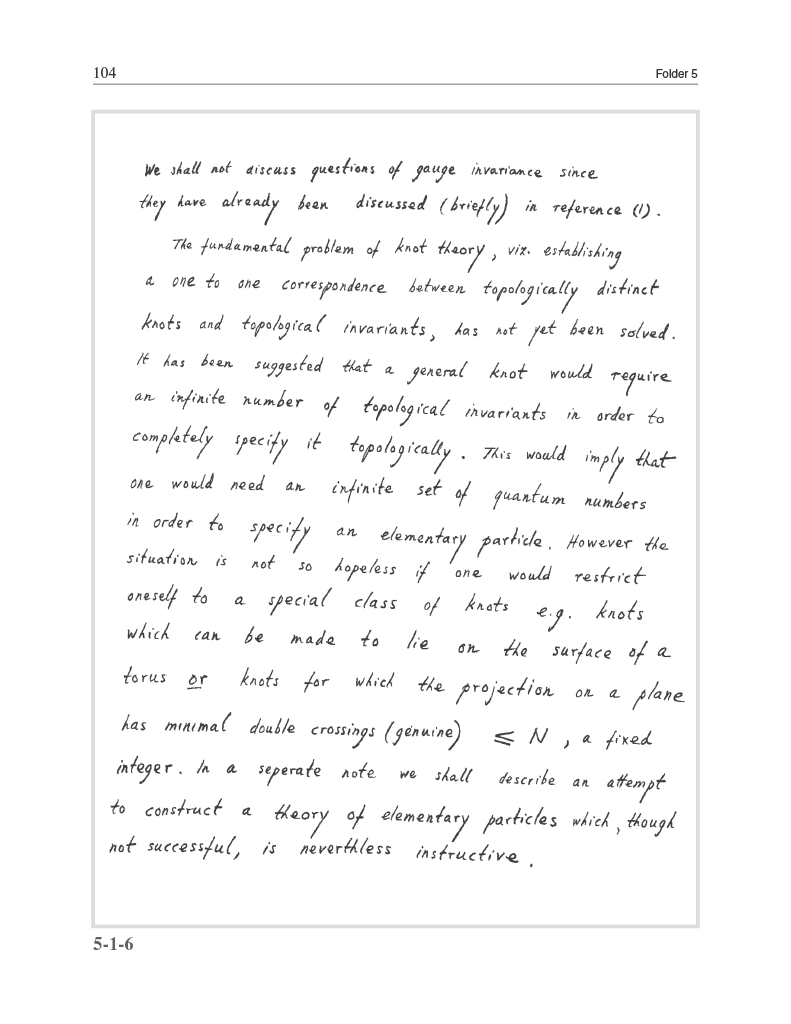 104
Folder 5
We shall not discuss questions of gauge invariance since
they have already been discussed (briefly) in reference (1).
The fundamental problem of knot theory, viz. establishing
a one to one correspondence between topologically distinct
knots and topological invariants, has not yet been solved.
It has been suggested that a general knot would require
an infinite number of topological invariants in order to
completely specify it topologically. This would imply that
one would need an infinite set of quantum numbers
in order to specify an elementary particle. However the
situation is not so hopeless if one would restrict
oneself to a special class of knots e.g. knots
which can be made to lie on the surface of a
torus or knots for which the projection on a plane
has minimal double crossings (genuine) ≤ N, a fixed
integer. In a seperate note we shall describe an attempt
to construct a theory of elementary particles which, though
not successful, is neverthless instructive.
5-1-6